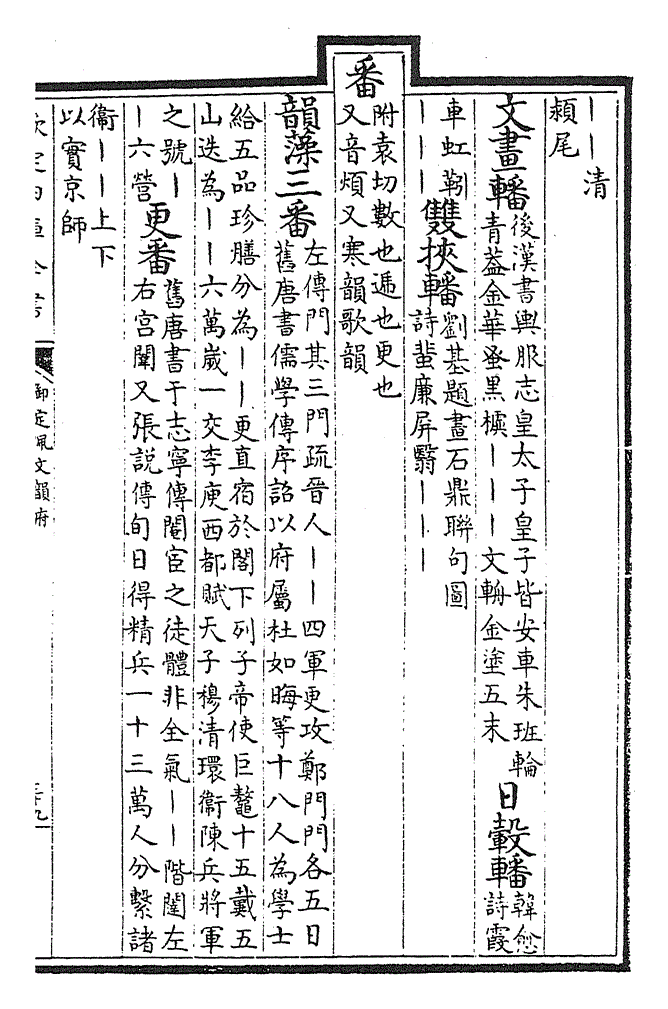 ｜｜清
頳尾
文畫轓後漢書輿服志皇太子皇子皆安車朱班輪
青葢金華蚤黑櫎｜｜｜文輈金塗五末
日轂轓韓愈
詩霞
車虹靷
｜｜｜
雙挾轓劉基題畫石鼎聯句圖
詩蜚廉屏翳｜｜｜
番
附袁切數也遞也更也
又音煩又寒韻歌韻
韻藻三番左傳門其三門疏晉人｜｜四軍更攻鄭門門各五日
舊唐書儒學傳序詔以府屬杜如晦等十八人為學士
給五品珍膳分為｜｜更直宿於閣下列子帝使巨鼇十五戴五
山迭為｜｜六萬嵗一交李庾西都賦天子穆清環衞陳兵將軍
之號｜
｜六營
更番舊唐書于志寧傳閹宦之徒體非全氣｜｜階闥左
右宮闈又張說傳旬日得精兵一十三萬人分繫諸
衞｜｜上下
以實京師
欽定四庫全書
御定佩文韻府
三十九